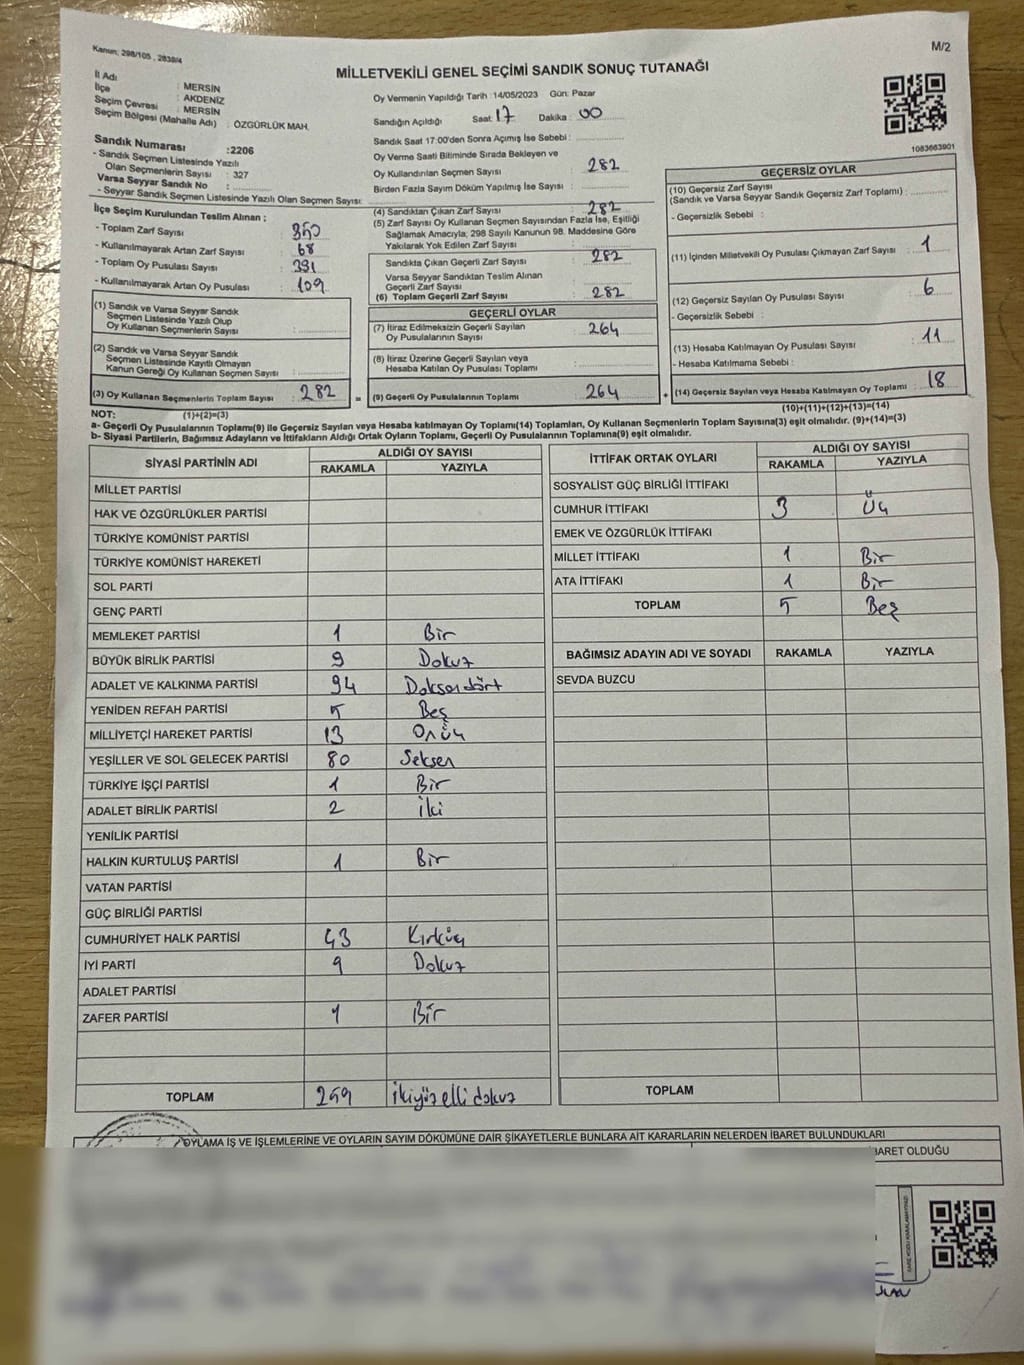 Kanun; 298/105 , 2839/4
M/2
MİLLETVEKİLİ GENEL SEÇİMİ SANDIK SONUÇ TUTANAĞI
İl Adı : MERSİN
İlçe : AKDENİZ
Seçim Çevresi : MERSİN
Seçim Bölgesi (Mahalle Adı) : ÖZGÜRLÜK MAH.
Sandık Numarası :2206
- Sandık Seçmen Listesinde Yazılı
Olan Seçmenlerin Sayısı : 327
Varsa Seyyar Sandık No :
- Seyyar Sandık Seçmen Listesinde Yazılı Olan Seçmen Sayısı:
Oy Vermenin Yapıldığı Tarih : 14/05/2023 Gün: Pazar
Sandığın Açıldığı Saat : 17 Dakika : 00
Sandık Saat 17:00'den Sonra Açımış İse Sebebi :
Oy Verme Saati Bitiminde Sırada Bekleyen ve
Oy Kullandırılan Seçmen Sayısı : 282
Birden Fazla Sayım Döküm Yapılmış İse Sayısı :
1083663901
İlçe Seçim Kurulundan Teslim Alınan ;
- Toplam Zarf Sayısı : 350
- Kullanılmayarak Artan Zarf Sayısı : 68
- Toplam Oy Pusulası Sayısı : 391
- Kullanılmayarak Artan Oy Pusulası : 109
(1) Sandık ve Varsa Seyyar Sandık
Seçmen Listesinde Yazılı Olup
Oy Kullanan Seçmenlerin Sayısı :
(2) Sandık ve Varsa Seyyar Sandık
Seçmen Listesinde Kayıtlı Olmayan
Kanun Gereği Oy Kullanan Seçmen Sayısı :
(3) Oy Kullanan Seçmenlerin Toplam Sayısı : 282
(4) Sandıktan Çıkan Zarf Sayısı : 282
(5) Zarf Sayısı Oy Kullanan Seçmen Sayısından Fazla İse, Eşitliği
Sağlamak Amacıyla; 298 Sayılı Kanunun 98. Maddesine Göre
Yakılarak Yok Edilen Zarf Sayısı :
Sandıkta Çıkan Geçerli Zarf Sayısı : 282
Varsa Seyyar Sandıktan Teslim Alınan
Geçerli Zarf Sayısı :
(6) Toplam Geçerli Zarf Sayısı : 282
GEÇERLİ OYLAR
(7) İtiraz Edilmeksizin Geçerli Sayılan
Oy Pusulalarının Sayısı : 264
(8) İtiraz Üzerine Geçerli Sayılan veya
Hesaba Katılan Oy Pusulası Toplamı :
= (9) Geçerli Oy Pusulalarının Toplamı : 264
GEÇERSİZ OYLAR
(10) Geçersiz Zarf Sayısı
(Sandık ve Varsa Seyyar Sandık Geçersiz Zarf Toplamı) :
- Geçersizlik Sebebi :
(11) İçinden Milletvekili Oy Pusulası Çıkmayan Zarf Sayısı : 1
(12) Geçersiz Sayılan Oy Pusulası Sayısı : 6
- Geçersizlik Sebebi :
(13) Hesaba Katılmayan Oy Pusulası Sayısı : 11
- Hesaba Katılmama Sebebi :
+ (14) Geçersiz Sayılan veya Hesaba Katılmayan Oy Toplamı : 18
NOT: (1)+(2)=(3)
(10)+(11)+(12)+(13)=(14)
a- Geçerli Oy Pusulalarının Toplamı(9) ile Geçersiz Sayılan veya Hesaba Katılmayan Oy Toplamı(14) Toplamları, Oy Kullanan Seçmenlerin Toplam Sayısına(3) eşit olmalıdır. (9)+(14)=(3)
b- Siyasi Partilerin, Bağımsız Adayların ve İttifakların Aldığı Ortak Oyların Toplamı, Geçerli Oy Pusulalarının Toplamına(9) eşit olmalıdır.
SİYASİ PARTİNİN ADI ALDIĞI OY SAYISI
RAKAMLA YAZIYLA
MİLLET PARTİSİ
HAK VE ÖZGÜRLÜKLER PARTİSİ
TÜRKİYE KOMÜNİST PARTİSİ
TÜRKİYE KOMÜNİST HAREKETİ
SOL PARTİ
GENÇ PARTİ
MEMLEKET PARTİSİ 1 Bir
BÜYÜK BİRLİK PARTİSİ 9 Dokuz
ADALET VE KALKINMA PARTİSİ 94 Doksandört
YENİDEN REFAH PARTİSİ 5 Beş
MİLLİYETÇİ HAREKET PARTİSİ 13 Onüç
YEŞİLLER VE SOL GELECEK PARTİSİ 80 Seksen
TÜRKİYE İŞÇİ PARTİSİ 1 Bir
ADALET BİRLİK PARTİSİ 2 İki
YENİLİK PARTİSİ
HALKIN KURTULUŞ PARTİSİ 1 Bir
VATAN PARTİSİ
GÜÇ BİRLİĞİ PARTİSİ
CUMHURİYET HALK PARTİSİ 43 Kırküç
İYİ PARTİ 9 Dokuz
ADALET PARTİSİ
ZAFER PARTİSİ 1 Bir
TOPLAM 259 İkiyüzellidokuz
İTTİFAK ORTAK OYLARI ALDIĞI OY SAYISI
RAKAMLA YAZIYLA
SOSYALİST GÜÇ BİRLİĞİ İTTİFAKI
CUMHUR İTTİFAKI 3 Üç
EMEK VE ÖZGÜRLÜK İTTİFAKI
MİLLET İTTİFAKI 1 Bir
ATA İTTİFAKI 1 Bir
TOPLAM 5 Beş
BAĞIMSIZ ADAYIN ADI VE SOYADI RAKAMLA YAZIYLA
SEVDA BUZCU
TOPLAM
OYLAMA İŞ VE İŞLEMLERİNE VE OYLARIN SAYIM DÖKÜMÜNE DAİR ŞİKAYETLERLE BUNLARA AİT KARARLARIN NELERDEN İBARET BULUNDUKLARI
İBARET OLDUĞU